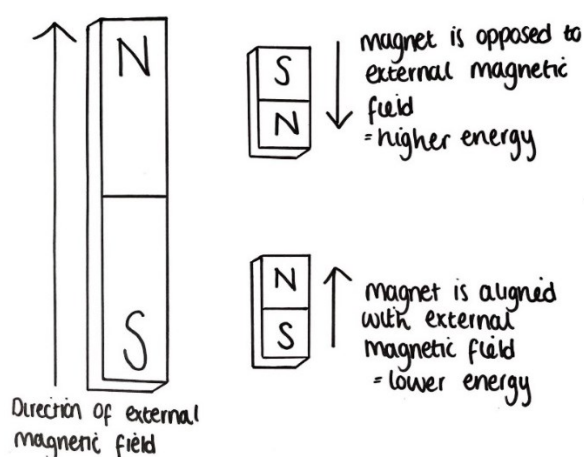 N
S
Direction of external
magnetic field
S
N
magnet is opposed to
external magnetic
field
=higher energy
N
S
magnet is aligned
with external
magnetic field
=lower energy